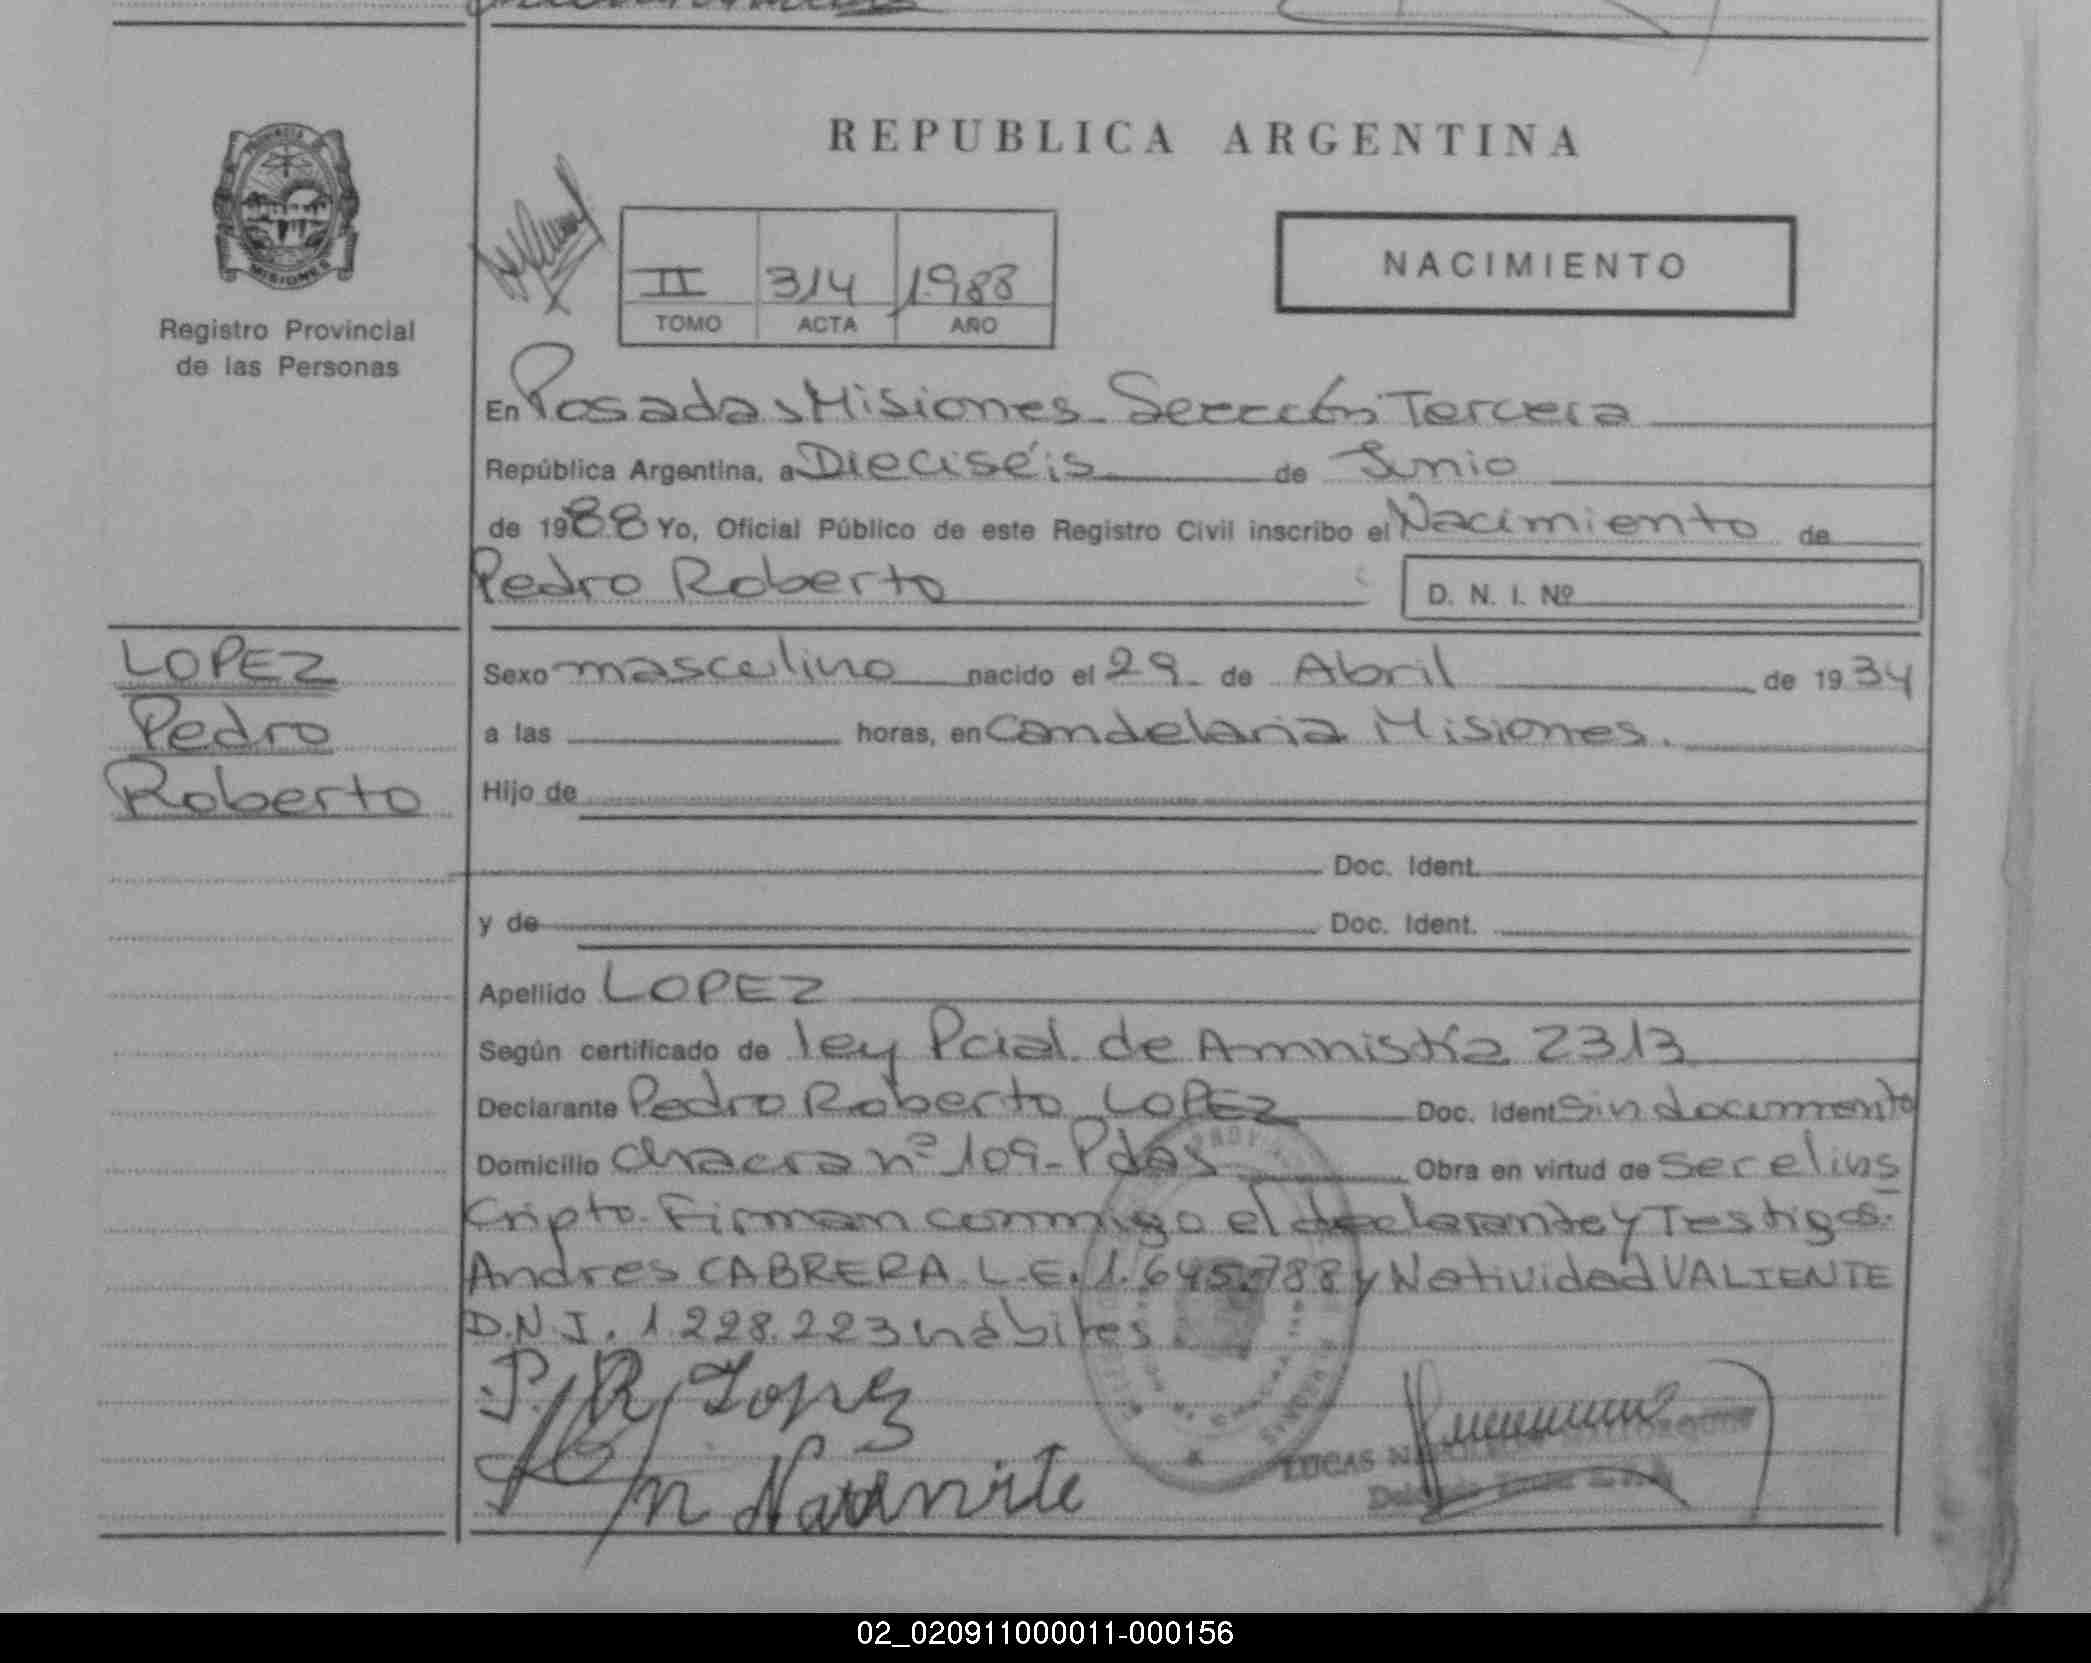 REPUBLICA ARGENTINA
PROVINCIA
MISIONES
Registro Provincial
de las Personas
II 314 1988
TOMO ACTA AÑO
NACIMIENTO
En Posadas Misiones - Sección Tercera
República Argentina, a Dieciséis de Junio
de 1988 Yo, Oficial Público de este Registro Civil inscribo el Nacimiento de
Pedro Roberto D. N. I. Nº
LOPEZ
Pedro
Roberto
Sexo masculino nacido el 29 de Abril de 1934
a las horas, en Candelaria Misiones.
Hijo de
Doc. Ident.
y de Doc. Ident.
Apellido LOPEZ
Según certificado de ley Pcial. de Amnistía 2313
Declarante Pedro Roberto LOPEZ Doc. Ident Sin documento
Domicilio Chacra nº 109 - Pdas Obra en virtud de ser el ins
cripto. Firman conmigo el declarante y Testigos.
Andres CABRERA L.E. 1.645.788 y Natividad VALIENTE
D.N.I. 1.228.223 hábiles
P. R. Lopez
LUCAS
02_020911000011-000156